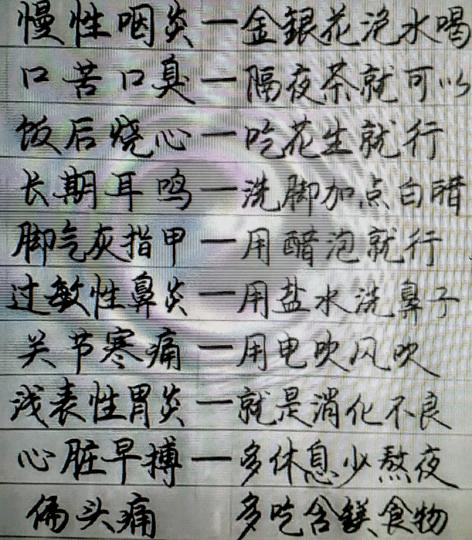 慢性咽炎一金銀花泡水喝
口苦口臭一隔夜茶就可以
饭后烧心一吃花生就行
长期耳鸣一洗脚加点白醋
脚气灰指甲一用醋泡就行
过敏性鼻炎一用盐水洗鼻子
关节寒痛一用电吹风吹
浅表性胃炎一就是消化不良
心脏早搏一多休息少熬夜
偏头痛 多吃含鎂食物